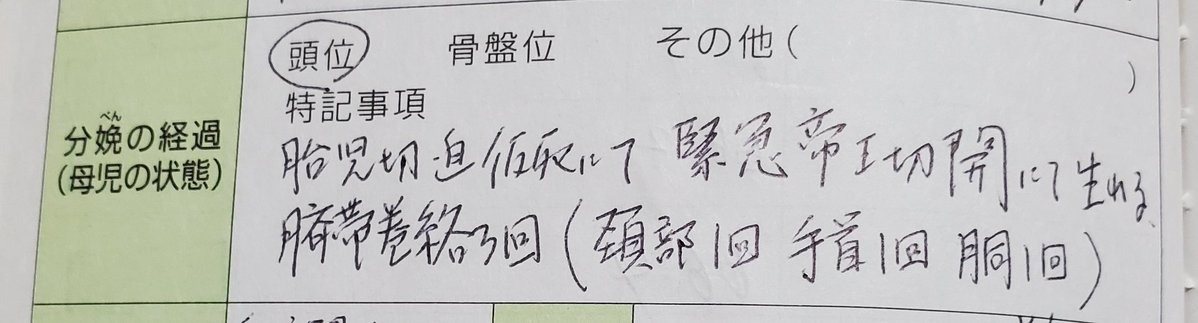 頭位 骨盤位 その他( )
特記事項
分娩の経過
べん
(母児の状態)
胎児切迫仮死にて 緊急帝王切開にて生れる
臍帯巻絡3回(頚部1回 手首1回 胴1回)